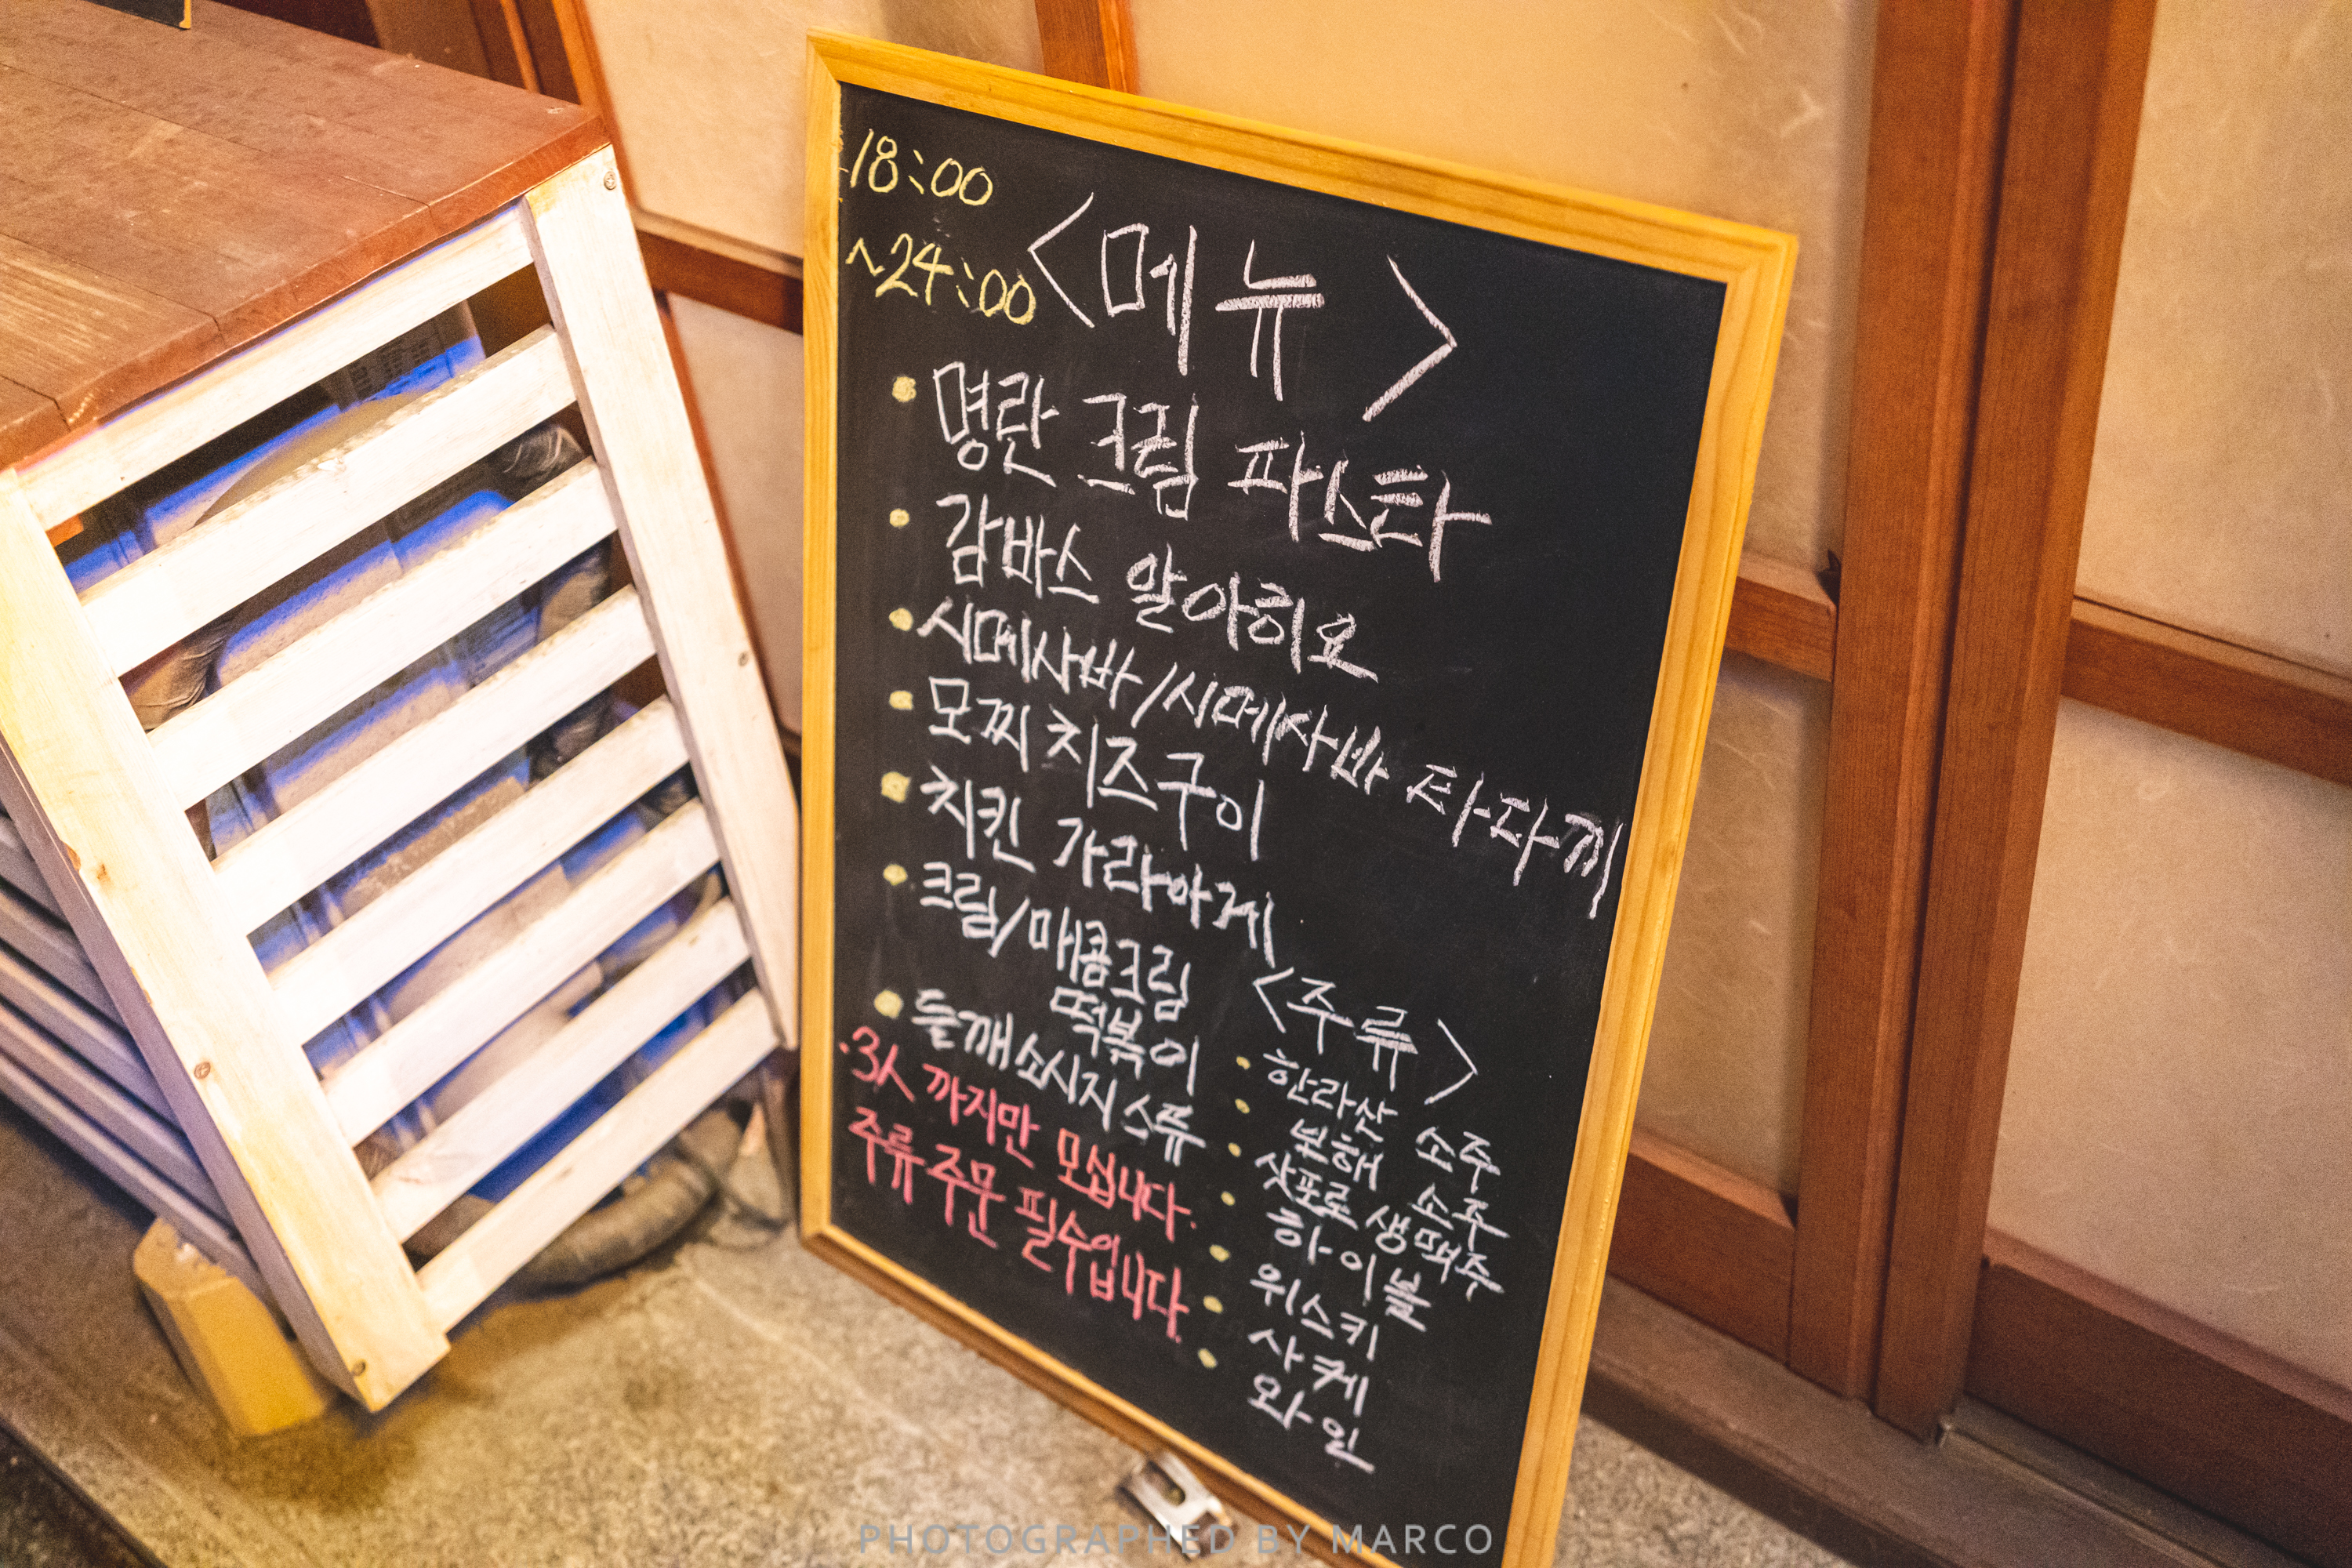 18:00
~24:00
<메뉴>
• 명란 크림 파스타
• 감바스 알아히요
• 시메사바/시메사바 타다끼
• 모찌 치즈구이
• 치킨 가라아게
• 크림/매콤크림
떡볶이
• 들깨소시지스튜
·3人 까지만 모십니다.
주류 주문 필수입니다.
<주류>
• 한라산 소주
• 보해 소주
• 삿포로 생맥주
• 하이볼
• 위스키
• 사케
• 와인
PHOTOGRAPHED BY MARCO